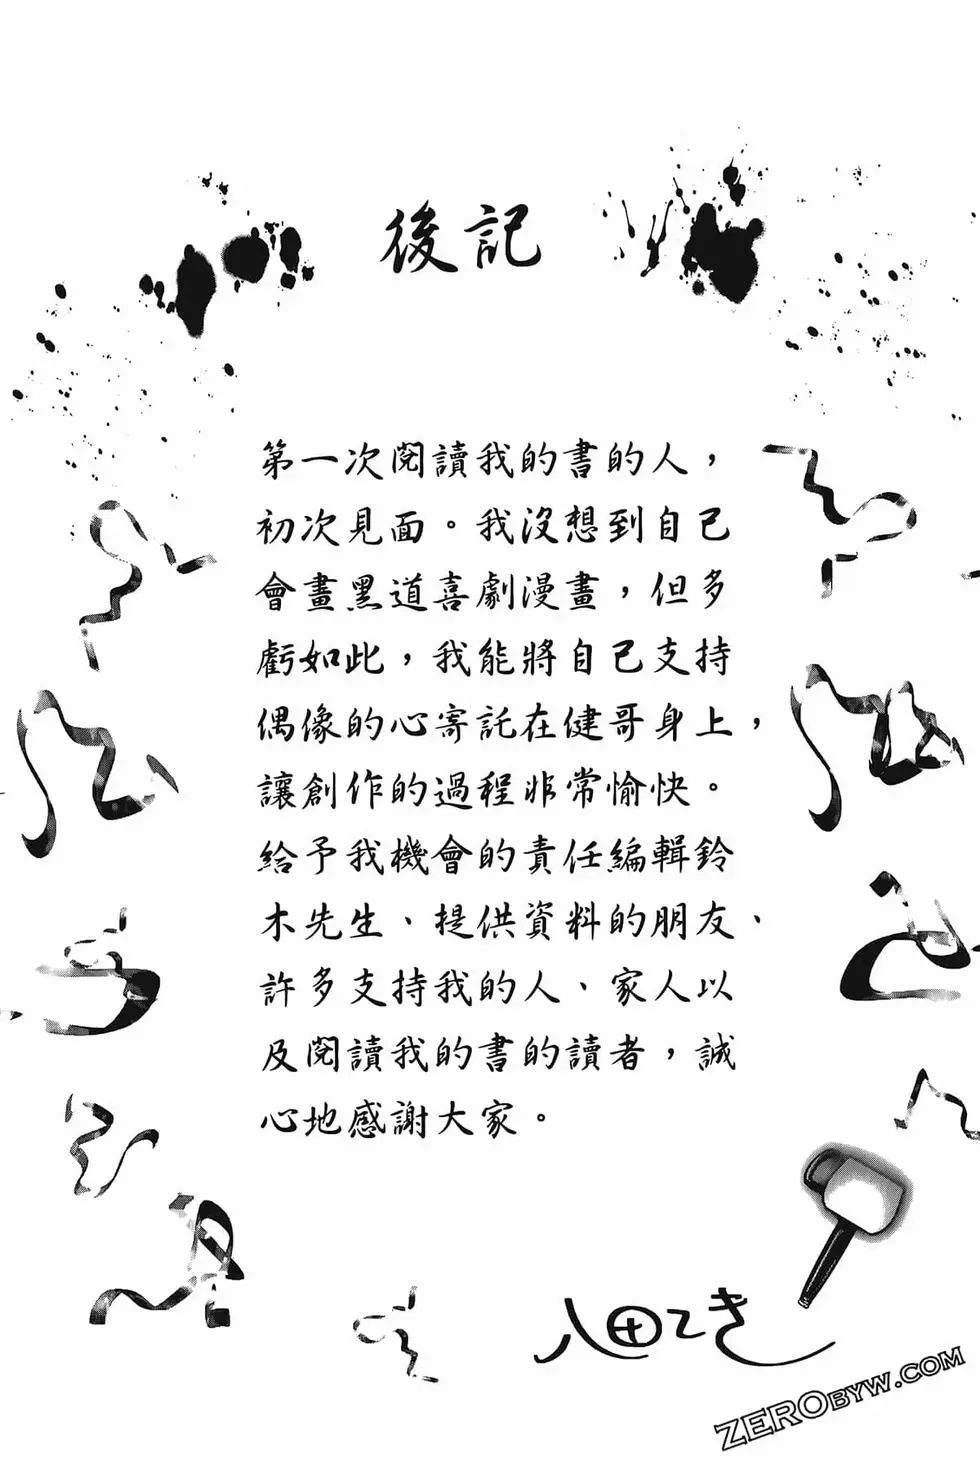 後記
第一次閱讀我的書的人，
初次見面。我沒想到自己
會畫黑道喜劇漫畫，但多
虧如此，我能將自己支持
偶像的心寄託在健哥身上，
讓創作的過程非常愉快。
給予我機會的責任編輯鈴
木先生、提供資料的朋友、
許多支持我的人、家人以
及閱讀我的書的讀者，誠
心地感謝大家。
八田てき
ZEROBYW.COM